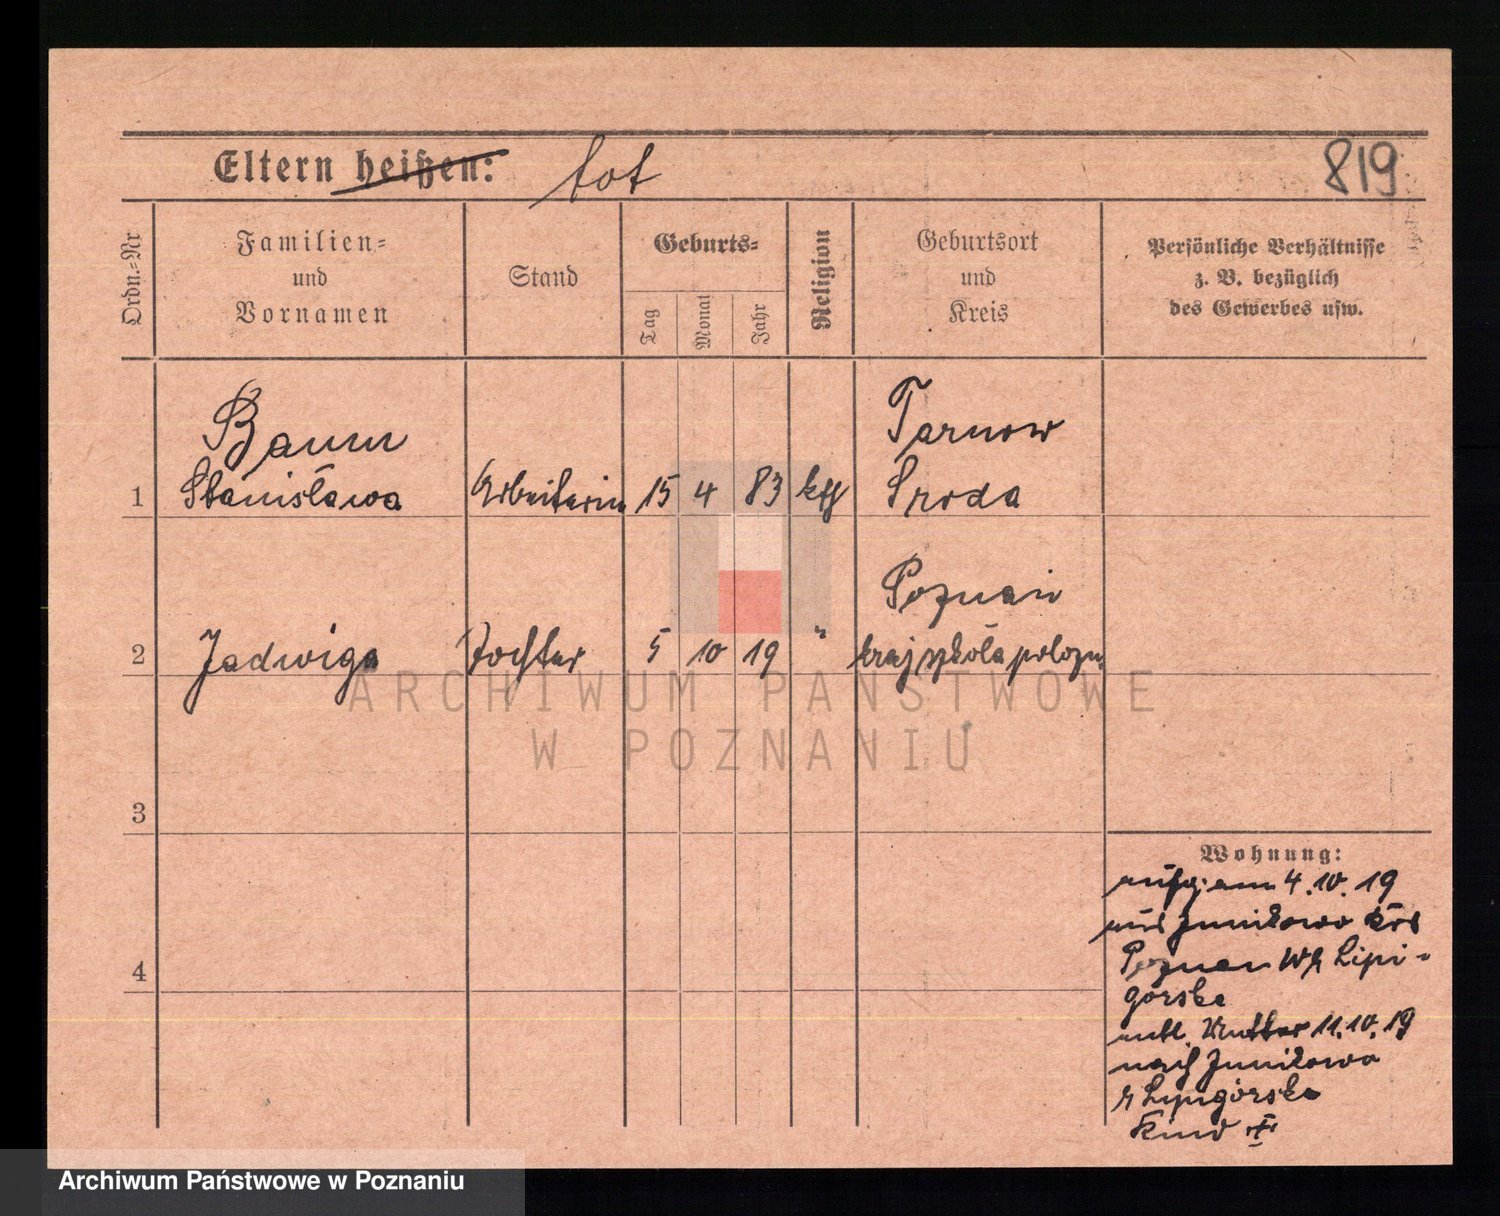 Eltern heißen: tot
819
Ordn.-Nr
Familien-
und
Vornamen
Stand
Geburts-
Tag
Monat
Jahr
Religion
Geburtsort
und
Kreis
Persönliche Verhältnisse
z. B. bezüglich
des Gewerbes usw.
Baum
Tarnow
1 Stanisława Arbeiterin 15 4 83 kth Sroda
Poznań
2 Jadwiga Tochter 5 10 19 " kraj szkoła położn
3
4
Wohnung:
aufg. am 4.10.19
aus Junikowo Krs
Poznan b/ Lipi-
gorska
entl. Mutter 11.10.19
nach Junikowo
b/ Lipigórska
Kind †
ARCHIWUM PAŃSTWOWE
W POZNANIU
Archiwum Państwowe w Poznaniu